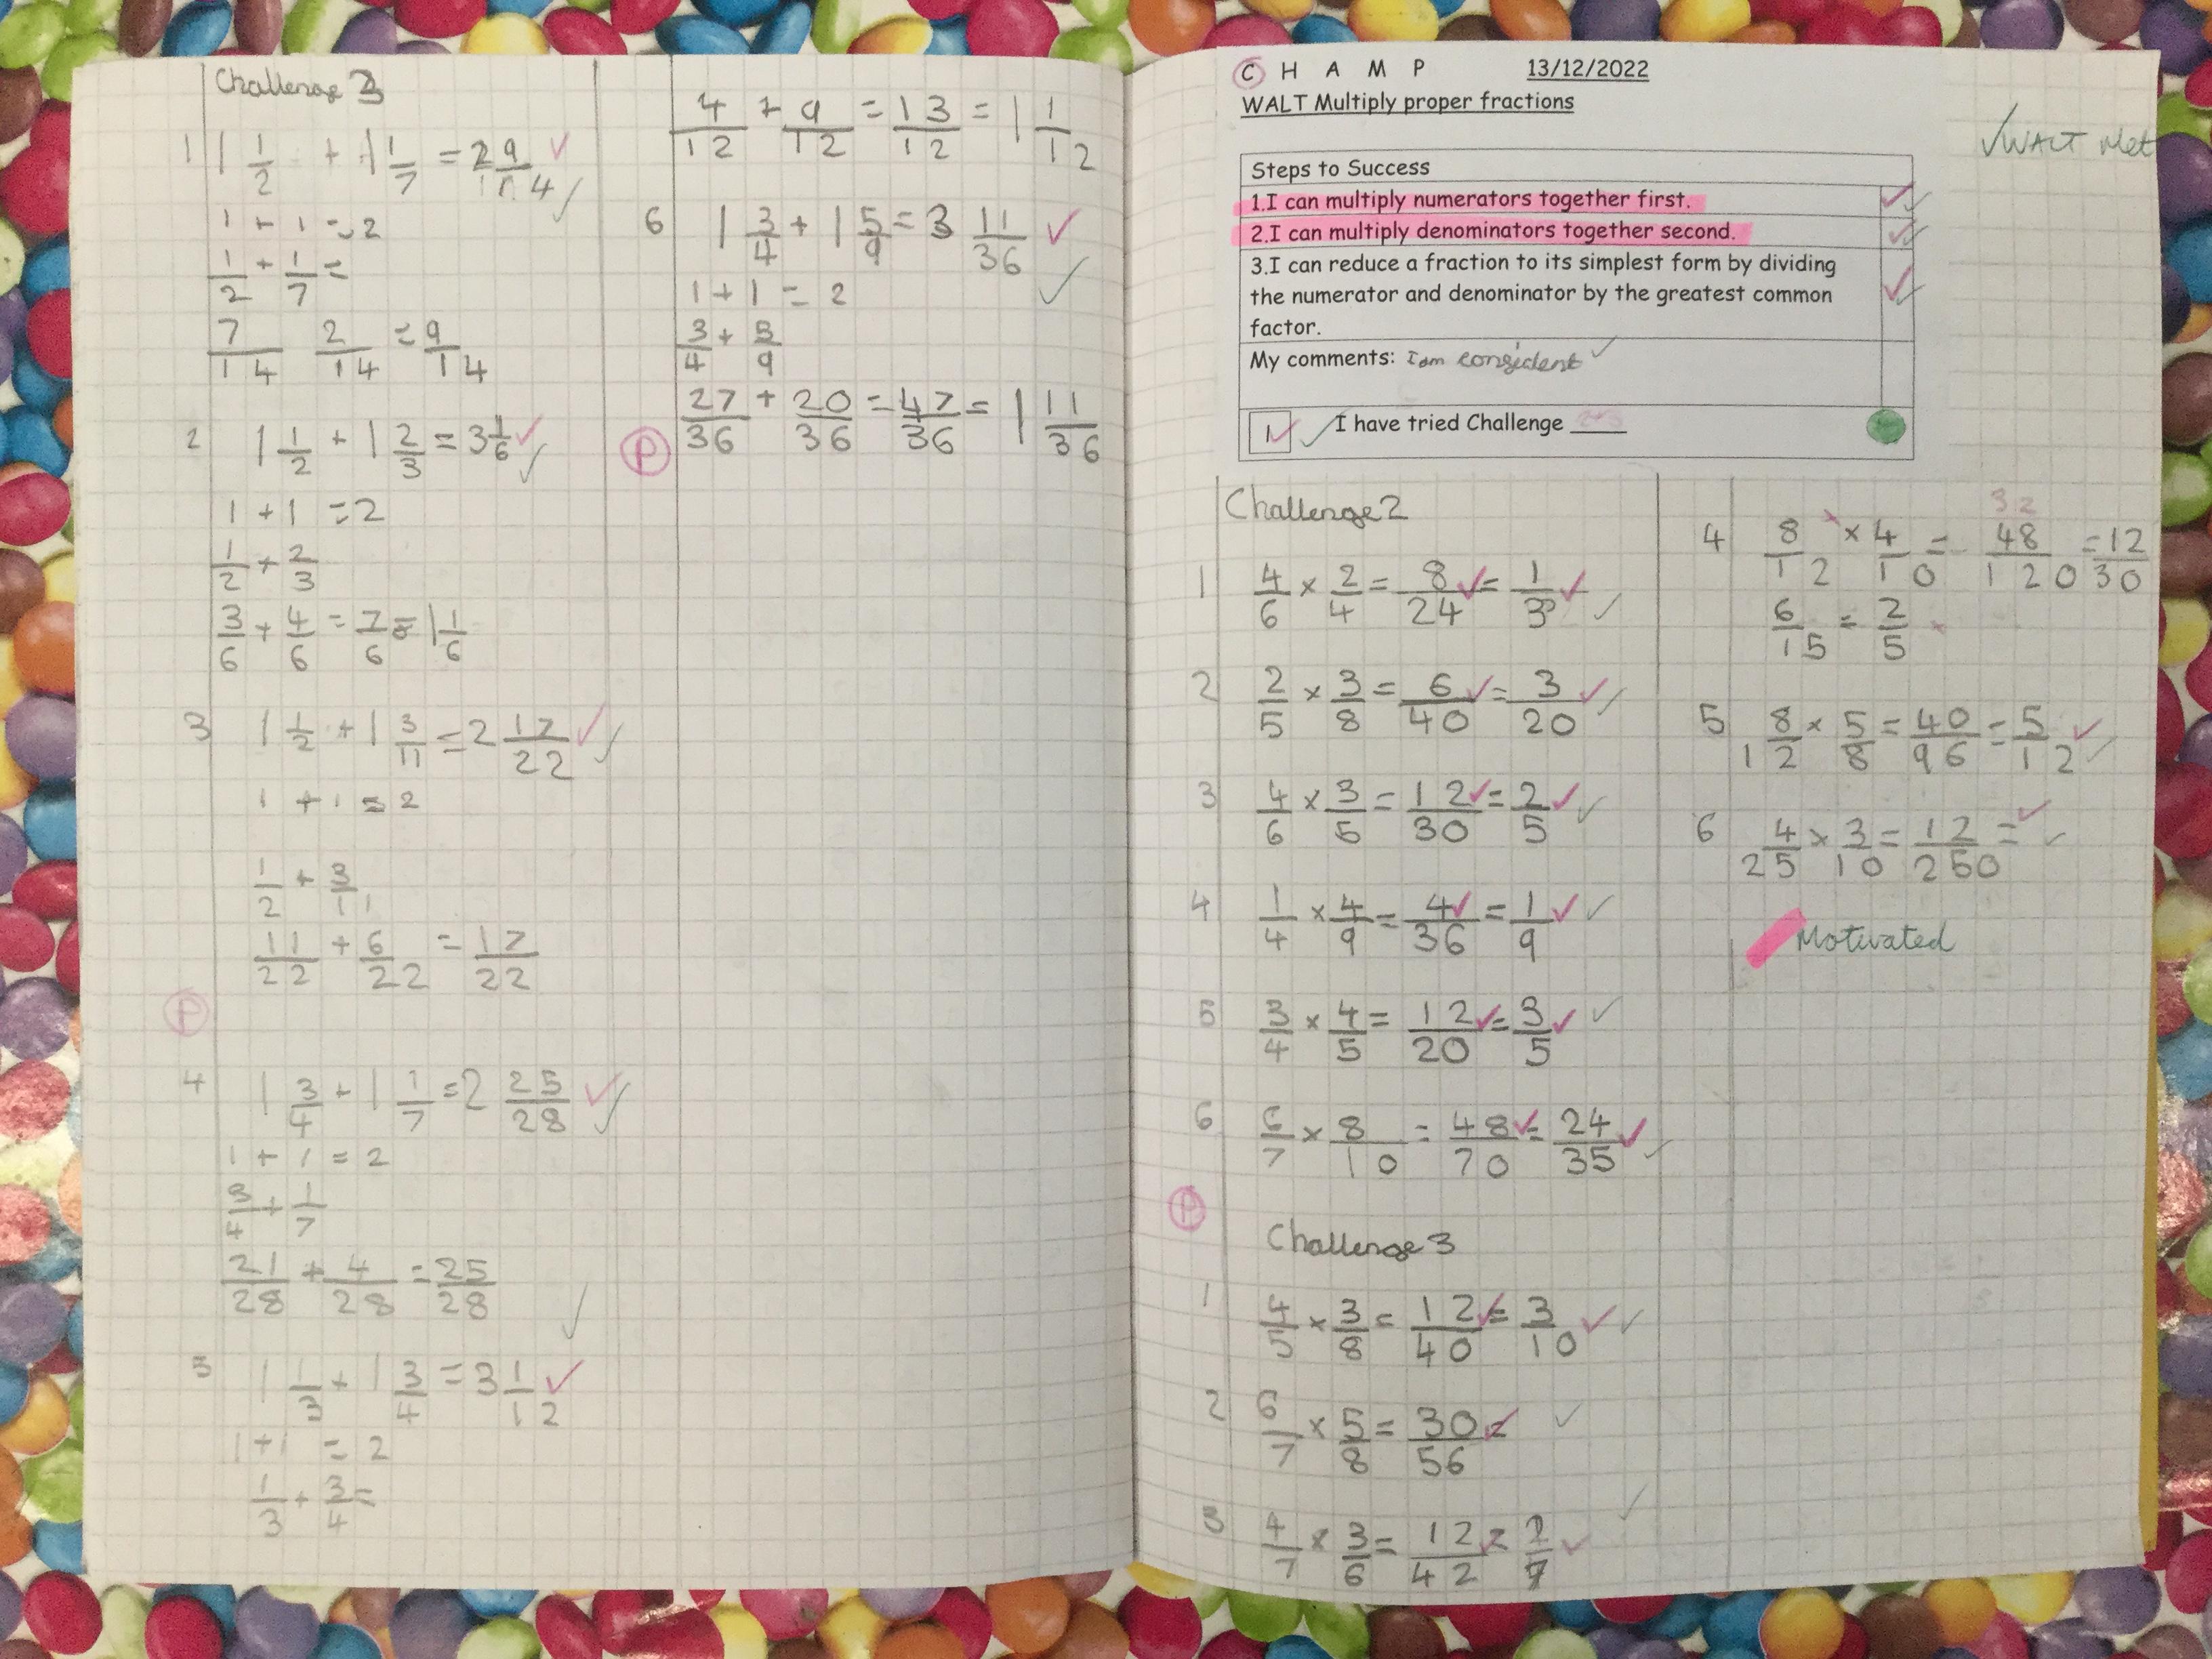 Challenge 3
1 1 1/2 + 1 1/7 = 2 9/14
1 + 1 = 2
1/2 + 1/7 =
7/14 2/14 = 9/14
2 1 1/2 + 1 2/3 = 3 1/6
1 + 1 = 2
1/2 + 2/3
3/6 + 4/6 = 7/6 = 1 1/6
3 1 1/2 + 1 3/11 = 2 17/22
1 + 1 = 2
1/2 + 3/11
11/22 + 6/22 = 17/22
P
4 1 3/4 + 1 1/7 = 2 25/28
1 + 1 = 2
3/4 + 1/7
21/28 + 4/28 = 25/28
5 1 1/3 + 1 3/4 = 3 1/12
1 + 1 = 2
1/3 + 3/4 =
4/12 + 9/12 = 13/12 = 1 1/12
6 1 3/4 + 1 5/9 = 3 11/36
1 + 1 = 2
3/4 + 5/9
27/36 + 20/36 = 47/36 = 1 11/36
P
C H A M P 13/12/2022
WALT Multiply proper fractions
WALT Met
Steps to Success
1.I can multiply numerators together first.
2.I can multiply denominators together second.
3.I can reduce a fraction to its simplest form by dividing
the numerator and denominator by the greatest common
factor.
My comments: I am consident
I have tried Challenge
Challenge 2
1 4/6 × 2/4 = 8/24 = 1/3
2 2/5 × 3/8 = 6/40 = 3/20
3 4/6 × 3/5 = 12/30 = 2/5
4 1/4 × 4/9 = 4/36 = 1/9
5 3/4 × 4/5 = 12/20 = 3/5
6 6/7 × 8/10 = 48/70 = 24/35
P
Challenge 3
1 4/5 × 3/8 = 12/40 = 3/10
2 6/7 × 5/8 = 30/56
3 4/7 × 3/6 = 12/42 = 2/7
32
4 8/12 × 4/10 = 48/120 = 12/30
6/15 = 2/5
5 8/12 × 5/8 = 40/96 = 5/12
6 4/25 × 3/10 = 12/250 =
Motivated